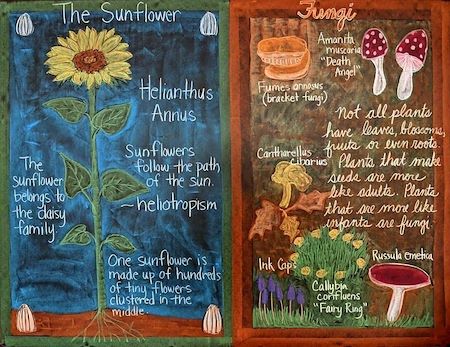 The Sunflower
Helianthus
Annus
Sunflowers
follow the path
of the sun.
~ heliotropism
The
sunflower
belongs to
the daisy
family.
One sunflower is
made up of hundreds
of tiny flowers
clustered in the
middle.
Fungi
Amanita
muscaria
"Death
Angel"
Fumes annosus
(bracket fungi)
Not all plants
have leaves, blossoms,
fruits or even roots.
Plants that make
seeds are more
like adults. Plants
that are more like
infants are fungi.
Cantharellus
Cibarius
Ink Caps
Callybia
confluens
"Fairy Ring"
Russula Emetica